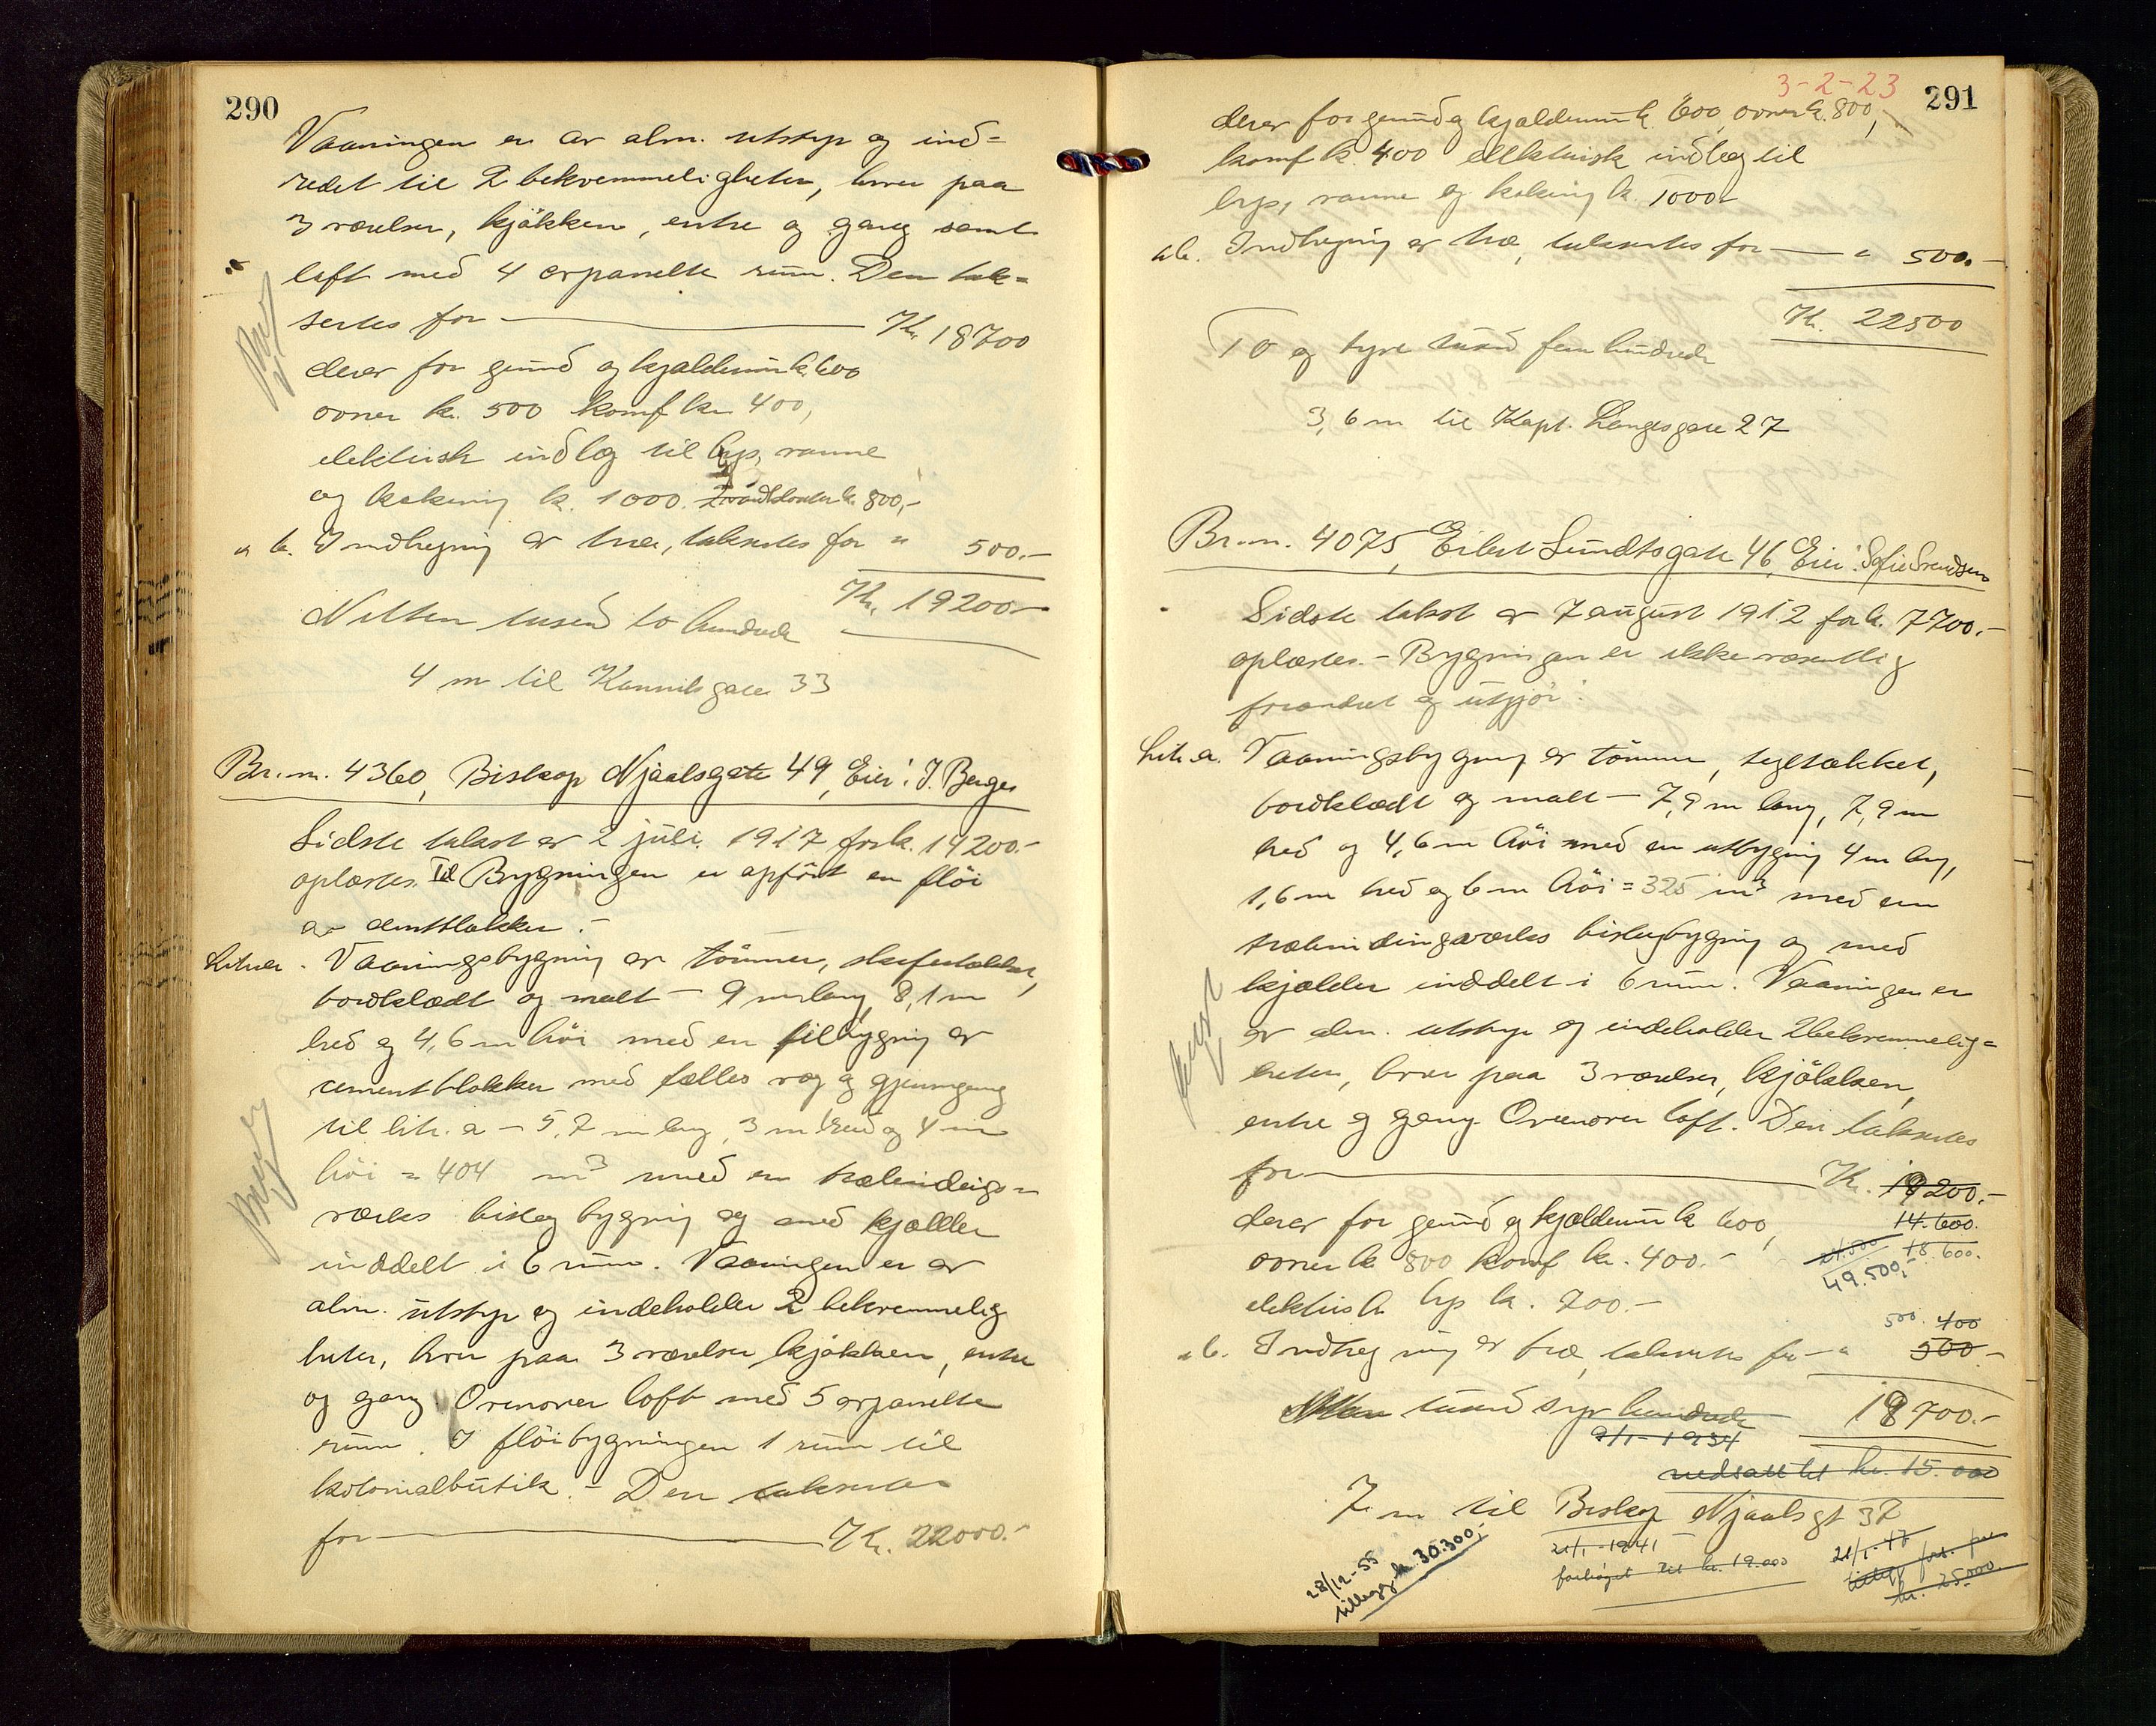 290
Vaaningen er av alm. utstyr og ind=
redet til 2 bekvemmeligheter, hver paa
3 værelser, kjökken, entre og gang samt
loft med 4 avpanelte rum. Den tak=
seres for — Kr. 18700
derav for grund og kjeldermur k. 600
ovner kr. 500 komf kr 400,
elektrisk indlæg til lys, varme
og kokning k. 1000. k. 800,-
" b. Indhegning av træ, takseres for " 500.-
Kr. 19200.-
Nitten tusen to hundrede
4 m til Kannikgaten 33
Br.n. 4360, Biskop Njaalsgate 49, Eier: J. Berge
Sidste takst av 2 juli 1917 for k. 14200.-
oplæstes. Til Bygningen er opfört en flöi
av cementblokker.-
Litr. a. Vaaningsbygning av tömmer, skifertækket,
bordklædt og malt - 9 m lang, 8,1 m
bred og 4,6 m höi med en tilbygning av
cementblokker med fælles væg og gjennemgang
til litr. a - 5,7 m lang, 3 m bred og 4 m
höi = 404 m³ med en træbindings=
verks bislagbygning og med kjælder
inddelt i 6 rum. Vaaningen er av
alm. utstyr og indeholder 2 bekvemmelig
heter, hver paa 3 værelser kjökken, entre
og gang Ovenover loft med 5 avpanelte
rum. I flöibygningen 1 rum til
kolonialbutik.- Den takseres
for — Kr. 22000.-
3-2-23
291
derav for grund og kjældermur k. 600, ovner k. 800,
komf k. 400 elektrisk indlæg til
lys, varme og kokning k. 1000.-
" b. Indhegning av træ, takseres for — " 500.-
Kr. 22500
To og tyve tusend fem hundrede
3,6 m til Kapt. Langesgate 27
Br.n. 4075, Eilert Sundtsgate 46, Eier: Sofie Svendsen
Sidste takst av 7 august 1912 for k. 7700.-
oplæstes.- Bygningen er ikke væsentlig
forandret og utgjör:
Litr. a. Vaaningsbygning av tömmer, tegltækket,
bordklædt og malt - 7,9 m lang, 7,9 m
bred og 4,6 m höi med en utbygning 4 m lang,
1,6 m bred og 6 m höi = 325 m³ med en
træbindingsverks bislagbygning og med
kjælder inddelt i 6 rum. Vaaningen er
av alm. utstyr og indeholder 2 bekvemmelig=
heter, hver paa 3 værelser, kjökken,
entre og gang. Ovenover loft. Den takseres
for — Kr. 18200.-
derav for grund og kjældermur k 600, 14.600.
ovner k 800 komf kr. 400.- 18.600.
49.500,-
elektrisk lys k. 700.-
500. 400
" b. Indhegning av træ, takseres for — " 500.-
tusend syv hundrede 18700.-
9/1-1934
nedsatt til kr. 15.000
7 m til Biskop Njaalsgt 37
21/1-1941
forhöiet til kr. 19.000
21/1-47
tillegg fors. paa
kr. 25.000
28/12-55
tillegg kr. 30.300,-